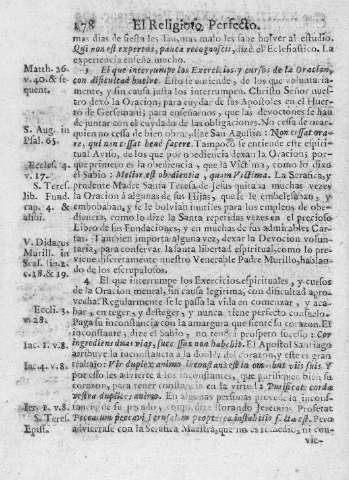 178 El Religioso Perfecto.
mas dias de fiesta les dan, mas malo les sabe bolver al estudio.
Qui non est expertus, pauca recognoscit, dize el Eclesiastico. La
experiencia enseña mucho.
Matth. 26. v. 40. & sequent.
3 El que interrumpe los Exercicios, y cursos de la Oracion,
con dificultad buelve. Esto se entiende, de los que voluntaria-
mente, y sin causa justa los interrumpen. Christo Señor nuestro
dexó la Oracion, para cuydar de sus Apostoles en el Huerto
de Getsemani; para enseñarnos, que las devociones se han
de juntar con el cuydado de las obligaciones. No cessa de orar,
S. Aug. in Psal. 65.
quien no cessa de bien obrar, dize San Agustin: Non cessat ora-
re, qui non cessat benè facere. Tampoco se entiende este espiri-
tual Aviso, de los que por obediencia dexan la Oracion; por-
que primero es la obediencia, que la Victima, como lo dixo
Eccles. 4. v. 17.
el Sabio: Melior est obedientia, quam Victima. La Serafica, y
S. Teres. lib. Fund. cap. 4. & alibi.
prudente Madre Santa Teresa de Jesus quitaba muchas vezes
la Oracion à algunas de sus Hijas, que se embelesaban, y
embobaban, y se bolvian inutiles para los empleos de obe-
diencia, como lo dize la Santa repetidas vezes en el precioso
Libro de sus Fundaciones, y en muchas de sus admirables Car-
V. Didacus Murill. in Scal. c.18. & 19.
tas. Tambien importa alguna vez, dexar la Devocion volun-
taria, para conservar la santa libertad espiritual, como lo pre-
viene discretamente nuestro Venerable Padre Murillo, hablan-
do de los escrupulos.
4 El que interrumpe los Exercicios espirituales, y cursos
de la Oracion mental, sin causa legitima, con dificultad apro-
vecha: Regularmente se le passa la vida en comenzar, y aca-
Eccli. 3. v. 28.
bar, en teger, y desteger, y nunca tiene perfecto consuelo.
Paga su inconstancia con la amargura que siente su corazon. El
inconstante, dize el Sabio, no tendrá prospero sucesso: Cor
ingrediens duas vias, successus non habebit. El Apostol Santiago
Iac. 1. v. 8.
atribuye la inconstancia à la doblèz del corazon, y este es gran
Iac. 4. v. 8.
trabajo: Vir duplex animo inconstans est in omnibus viis suis. Y
por esso les advierte à los inconstantes, que purifiquen bien su
corazon, para tener constancia en la virtud: Purificate corda
vestra duplices animo. En algunas personas procede la incons-
Ier. 1. v. 8.
tancia de su pecado, como dize llorando Jeremias Profeta:
S. Teres. Epist.
Peccatum peccavit Ierusalem propterea instabilis facta est. Pero
advierrase con la Serafica Maestra, que no es remedio, ni con-
vic-